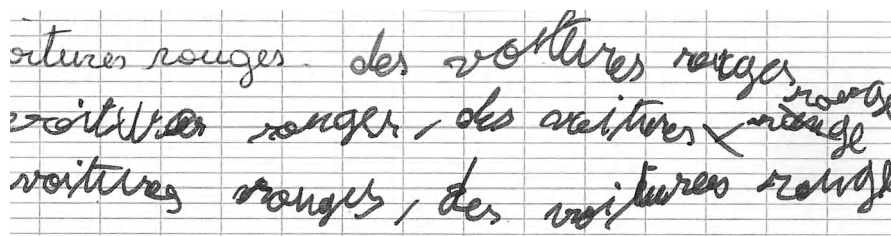 oitures rouges. des voitures rouges
voitures rouges, des voitures rouge
rouge
voitures rouges, des voitures rouge